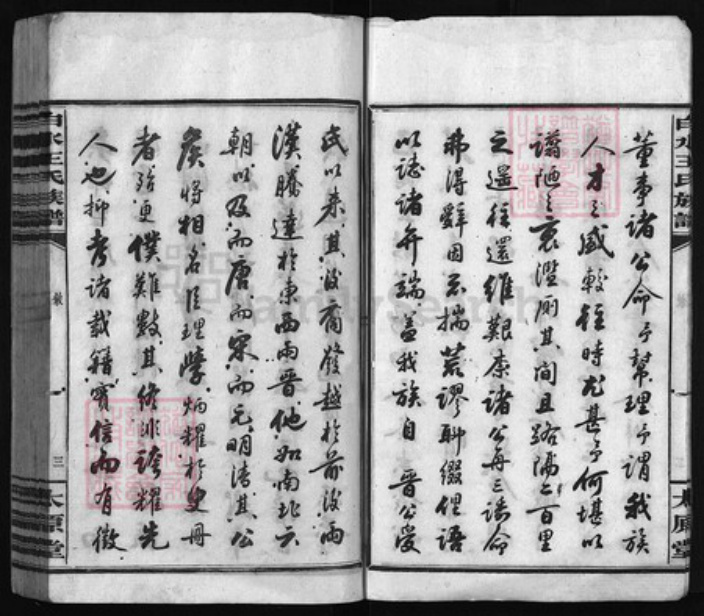 董事諸公命予幫理予謂我族
人才之盛較往時尤甚予何堪以
譾陋之衷濫廁其間且路隔二百里
之遥往還維艱奈諸公再三諈命
弗得辭因不揣荒謬聊綴俚語
以誌諸弁端蓋我族自晋公受
氏以来其後商發越於前後兩
漢騰達於東西兩晋他如南北六
朝以及而唐而宋而元明清其公
侯將相名臣理學炳耀於史冊
者殆更僕難數其修非誇耀先
人也抑考諸載籍實信而有徵
白水王氏族譜
太原堂
白水王氏族譜
三
太原堂
FamilySearch